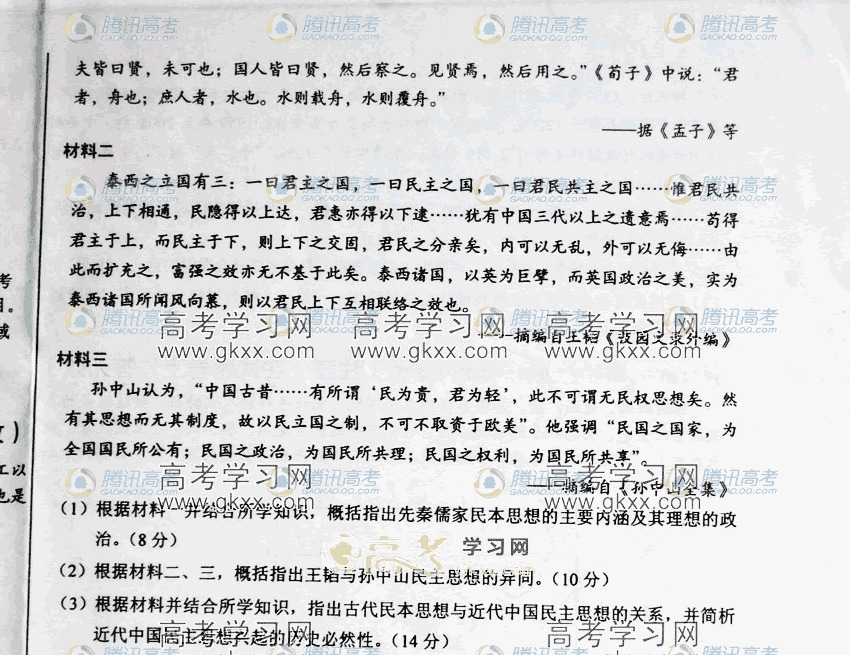 腾讯高考 腾讯高考 腾讯高考 腾讯高考
GAOKAO.QQ.COM GAOKAO.QQ.COM GAOKAO.QQ.COM GAOKAO.QQ.COM
夫皆曰贤，未可也；国人皆曰贤，然后察之。见贤焉，然后用之。”《荀子》中说：“君
者，舟也；庶人者，水也。水则载舟，水则覆舟。”
——据《孟子》等
材料二
泰西之立国有三：一曰君主之国，一曰民主之国，一曰君民共主之国……惟君民共
治，上下相通，民隐得以上达，君惠亦得以下逮……犹有中国三代以上之遗意焉……苟得
君主于上，而民主于下，则上下之交固，君民之分亲矣，内可以无乱，外可以无侮……由
此而扩充之，富强之效亦无不基于此矣。泰西诸国，以英为巨擘，而英国政治之美，实为
泰西诸国所闻风向慕，则以君民上下互相联络之效也。
高考学习网 高考学习网 高考学习网
www.gkxx.com www.gkxx.com www.gkxx.com
摘编自王韬《弢园文录外编》
材料三
孙中山认为，“中国古昔……有所谓‘民为贵，君为轻’，此不可谓无民权思想矣。然
有其思想而无其制度，故以民立国之制，不可不取资于欧美”。他强调“民国之国家，为
全国国民所公有；民国之政治，为国民所共理；民国之权利，为国民所共享”。
高考学习网 高考学习网
www.gkxx.com www.gkxx.com
摘编自《孙中山全集》
（1）根据材料一并结合所学知识，概括指出先秦儒家民本思想的主要内涵及其理想的政
治。（8分）
高考 学习网
（2）根据材料二、三，概括指出王韬与孙中山民主思想的异同。（10分）
（3）根据材料并结合所学知识，指出古代民本思想与近代中国民主思想的关系，并简析
近代中国民主思想兴起的历史必然性。（14分）
高考学习网 高考学习网